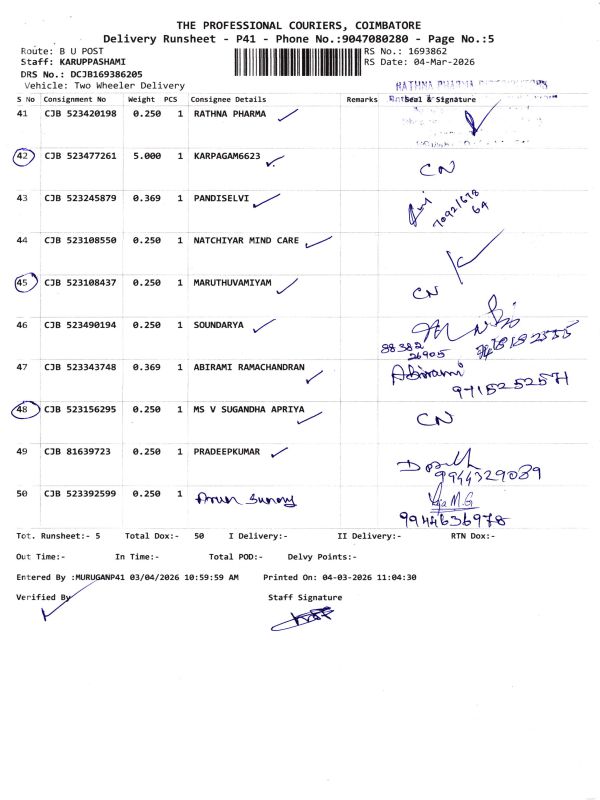 THE PROFESSIONAL COURIERS, COIMBATORE
Delivery Runsheet - P41 - Phone No.:9047080280 - Page No.:5
Route: B U POST RS No.: 1693862
Staff: KARUPPASHAMI RS Date: 04-Mar-2026
DRS No.: DCJB169386205
Vehicle: Two Wheeler Delivery
RATHNA PHARMA
S No Consignment No Weight PCS Consignee Details Remarks Seal & Signature
41 CJB 523420198 0.250 1 RATHNA PHARMA
42 CJB 523477261 5.000 1 KARPAGAM6623 CN
43 CJB 523245879 0.369 1 PANDISELVI
44 CJB 523108550 0.250 1 NATCHIYAR MIND CARE
45 CJB 523108437 0.250 1 MARUTHUVAMIYAM CN
46 CJB 523490194 0.250 1 SOUNDARYA
88382
26905
47 CJB 523343748 0.369 1 ABIRAMI RAMACHANDRAN Abirami
9715252571
48 CJB 523156295 0.250 1 MS V SUGANDHA APRIYA CN
49 CJB 81639723 0.250 1 PRADEEPKUMAR
9944329089
50 CJB 523392599 0.250 1
9944636978
Tot. Runsheet:- 5 Total Dox:- 50 I Delivery:- II Delivery:- RTN Dox:-
Out Time:- In Time:- Total POD:- Delvy Points:-
Entered By :MURUGANP41 03/04/2026 10:59:59 AM Printed On: 04-03-2026 11:04:30
Verified By Staff Signature